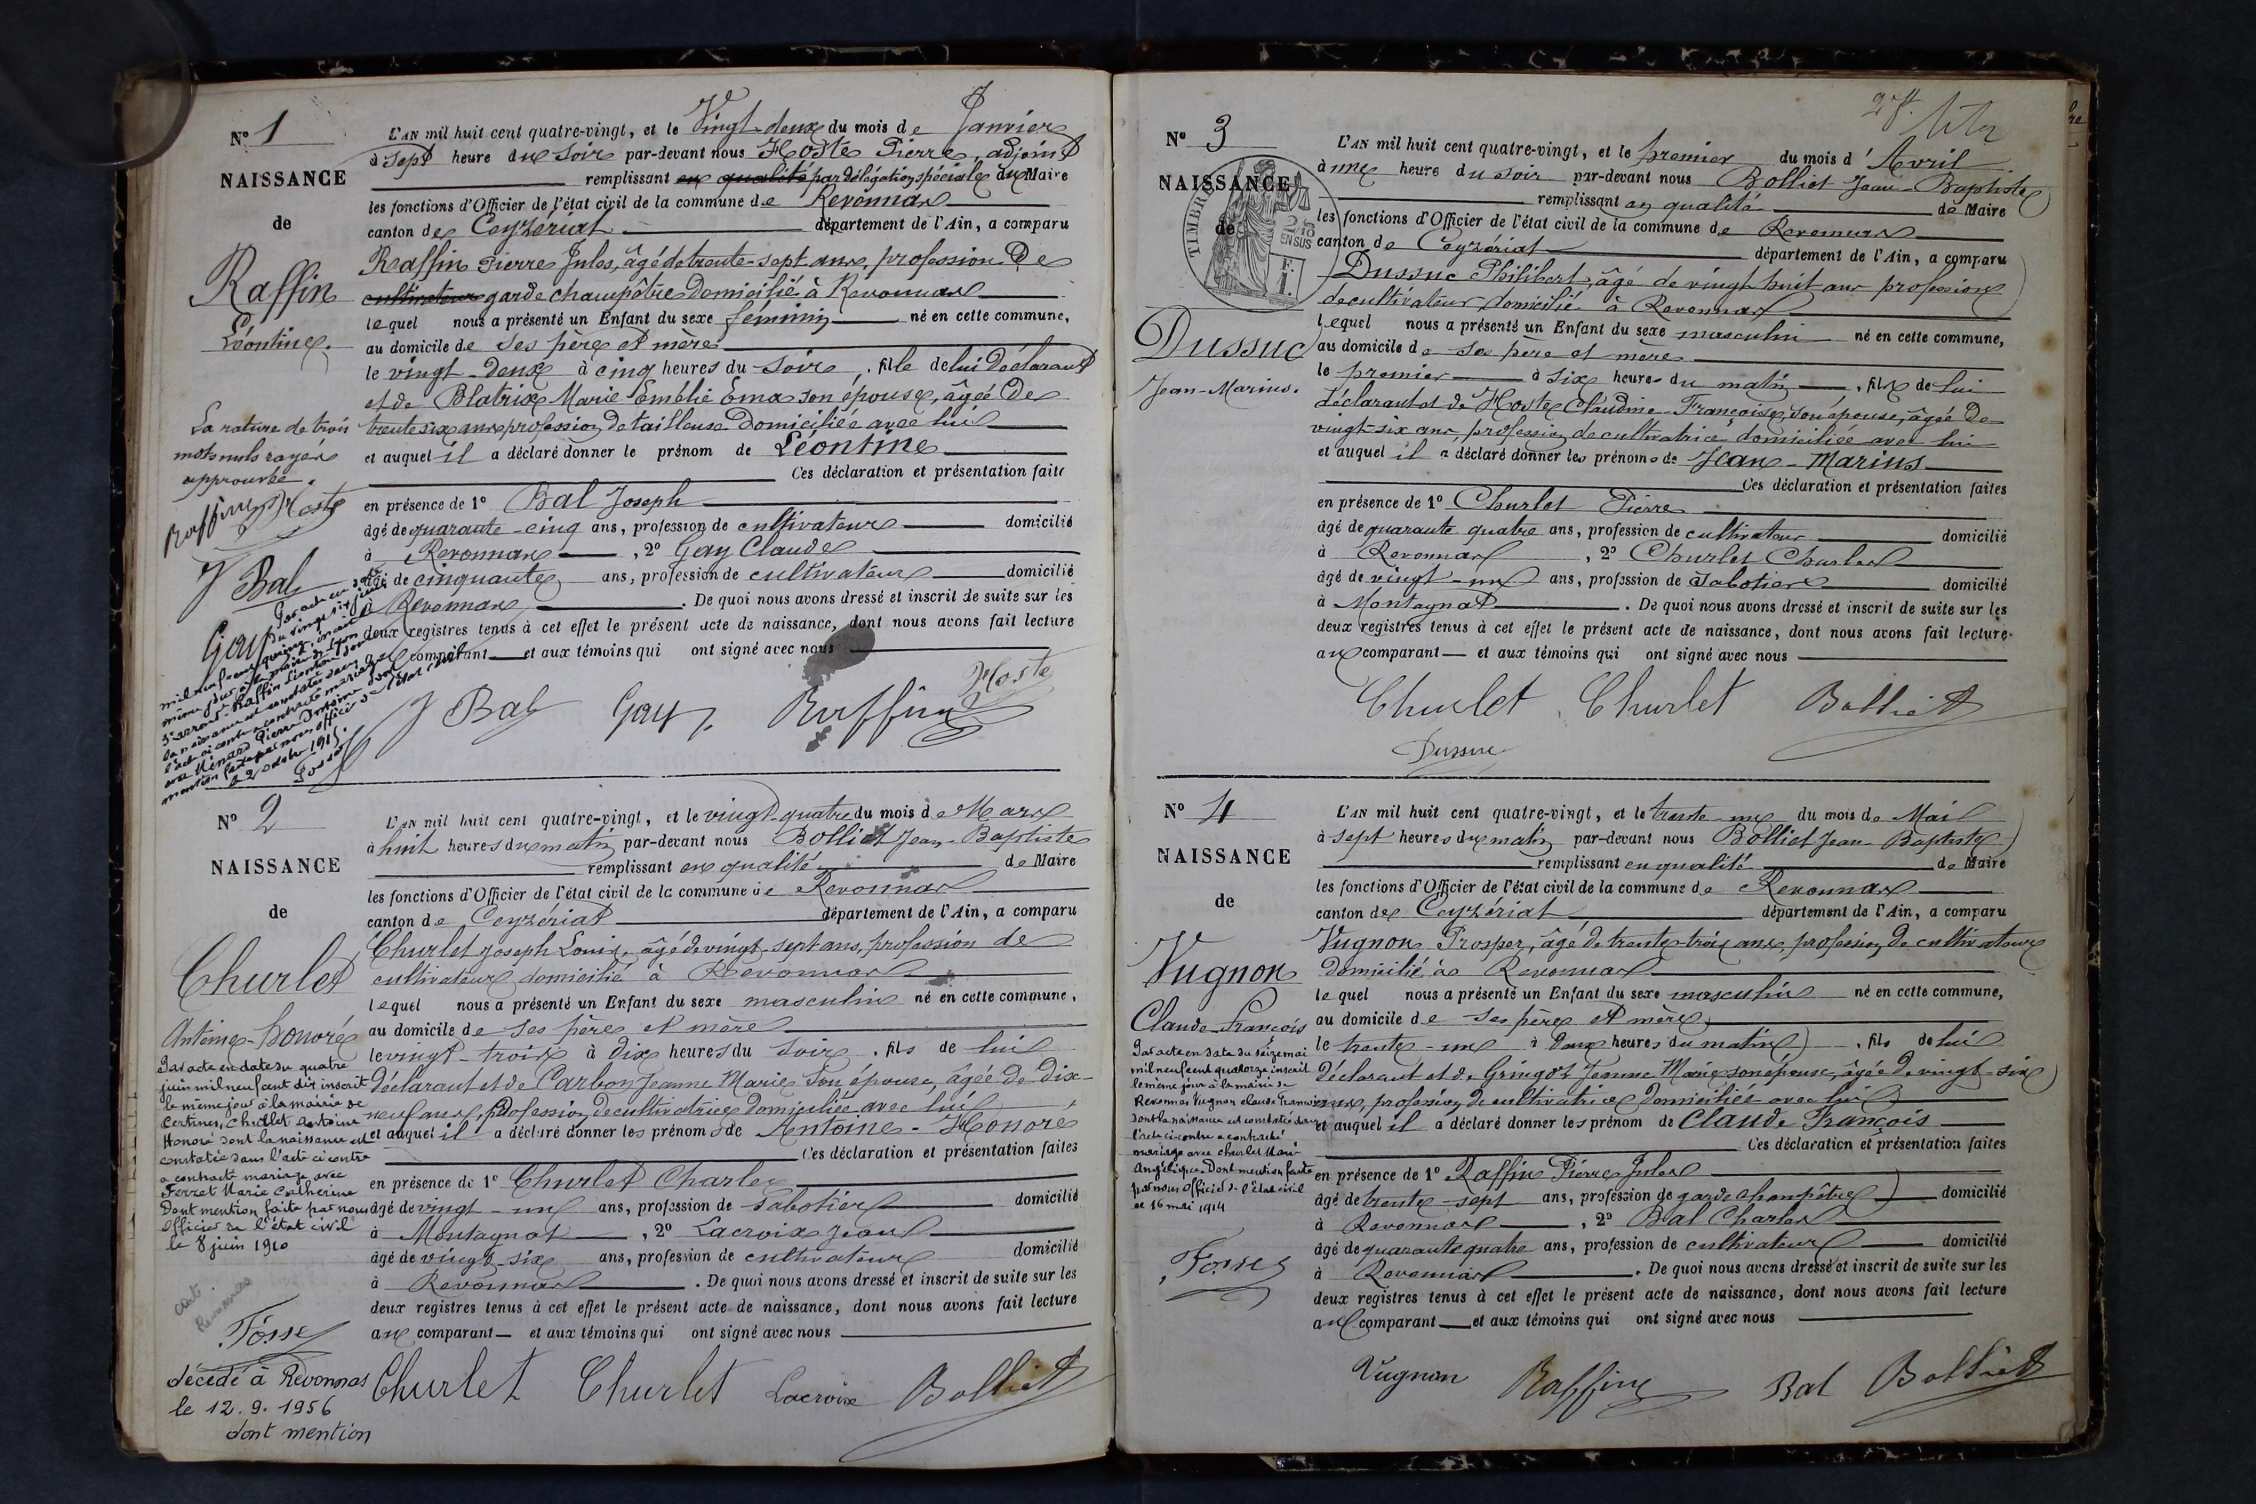 N° 1
NAISSANCE
de
Raffin
Léontine.
La rature de trois
mots nuls rayés
approuvée.
Raffin P Hoste
J Bal
Gay
L'AN mil huit cent quatre-vingt, et le Vingt-deux du mois de Janvier
à sept heure du soir par-devant nous Hoste Pierre, adjoint
remplissant en qualité par délégation spéciale du Maire
les fonctions d'Officier de l'état civil de la commune de Revonnas
canton de Ceyzériat département de l'Ain, a comparu
Raffin Pierre Jules, âgé de trente-sept ans, profession de
cultivateur garde champêtre domicilié à Revonnas
lequel nous a présenté un Enfant du sexe féminin né en cette commune,
au domicile de ses père et mère
le vingt-deux à cinq heures du soir, fille de lui déclarant
et de Blatrix Marie Emblie Ema son épouse, âgée de
trente six ans profession de tailleuse domiciliée avec lui
et auquel il a déclaré donner le prénom de Léontine
Ces déclaration et présentation faite
en présence de 1° Bal Joseph
âgé de quarante-cinq ans, profession de cultivateur domicilié
à Revonnas, 2° Gay Claude
âgé de cinquante ans, profession de cultivateur domicilié
à Revonnas. De quoi nous avons dressé et inscrit de suite sur les
deux registres tenus à cet effet le présent acte de naissance, dont nous avons fait lecture
au comparant et aux témoins qui ont signé avec nous
J Bal Gay Raffin P Hoste
Par acte en date
du vingt six juin
mil neuf cent quinze, inscrit
même jour à la mairie de Lyon
3e arrond. Raffin Léontine dont
la naissance est constatée dans
l'acte ci contre a contracté mariage
avec Ménard Pierre Antoine dont
mention faite par nous officier de l'état civil
le 2 octobre 1915.
N° 2
NAISSANCE
de
Churlet
Antoine-Honoré
Par acte en date du quatre
juin mil neuf cent dix inscrit
le même jour à la mairie de
Certines, Churlet Antoine
Honoré dont la naissance est
constatée dans l'acte ci contre
a contracté mariage avec
Ferret Marie Catherine
Dont mention faite par nous
Officier de l'état civil
le 8 juin 1910
Carte
Revonnas
Fosse
décédé à Revonnas
le 12.9.1956
dont mention
L'AN mil huit cent quatre-vingt, et le vingt-quatre du mois de Mars
à huit heures du matin par-devant nous Bolliet Jean-Baptiste
remplissant en qualité de Maire
les fonctions d'Officier de l'état civil de la commune de Revonnas
canton de Ceyzériat département de l'Ain, a comparu
Churlet Joseph Louis, âgé de vingt-sept ans, profession de
cultivateur domicilié à Revonnas
lequel nous a présenté un Enfant du sexe masculin né en cette commune,
au domicile de ses père et mère
le vingt-trois à dix heures du soir, fils de lui
déclarant et de Carbon Jeanne Marie son épouse, âgée de dix-
neuf ans, profession de cultivatrice domiciliée avec lui
et auquel il a déclaré donner les prénoms de Antoine-Honoré
Ces déclaration et présentation faites
en présence de 1° Churlet Charles
âgé de vingt-un ans, profession de Sabotier domicilié
à Montagnat, 2° Lacroix Jean
âgé de vingt-six ans, profession de cultivateur domicilié
à Revonnas. De quoi nous avons dressé et inscrit de suite sur les
deux registres tenus à cet effet le présent acte de naissance, dont nous avons fait lecture
au comparant et aux témoins qui ont signé avec nous
Churlet Churlet Lacroix Bolliet
N° 3
NAISSANCE
de
TIMBRE
2/10 EN SUS
F.
Dussuc
Jean-Marius.
L'AN mil huit cent quatre-vingt, et le premier du mois d'Avril
à une heure du soir par-devant nous Bolliet Jean-Baptiste
remplissant en qualité de Maire
les fonctions d'Officier de l'état civil de la commune de Revonnas
canton de Ceyzériat département de l'Ain, a comparu
Dussuc Philibert, âgé de vingt huit ans profession
de cultivateur domicilié à Revonnas
lequel nous a présenté un Enfant du sexe masculin né en cette commune,
au domicile de ses père et mère
le premier à six heures du matin, fils de lui
déclarant et de Hoste Claudine-Françoise son épouse, âgée de
vingt-six ans, profession de cultivatrice domiciliée avec lui
et auquel il a déclaré donner les prénoms de Jean-Marius
Ces déclaration et présentation faites
en présence de 1° Churlet Pierre
âgé de quarante quatre ans, profession de cultivateur domicilié
à Revonnas, 2° Churlet Charles
âgé de vingt-un ans, profession de Sabotier domicilié
à Montagnat. De quoi nous avons dressé et inscrit de suite sur les
deux registres tenus à cet effet le présent acte de naissance, dont nous avons fait lecture
au comparant et aux témoins qui ont signé avec nous
Churlet Churlet Bolliet
Dussuc
N° 4
NAISSANCE
de
Vugnon
Claude-François
Par acte en date du seize mai
mil neuf cent quatorze inscrit
le même jour à la mairie de
Revonnas Vugnon Claude François
dont la naissance est constatée dans
l'acte ci-contre a contracté
mariage avec Churlet Marie
Angélique. Dont mention faite
par nous Officier de l'état civil
le 16 mai 1914
Fosse
L'AN mil huit cent quatre-vingt, et le trente-un du mois de Mai
à sept heures du matin par-devant nous Bolliet Jean-Baptiste
remplissant en qualité de Maire
les fonctions d'Officier de l'état civil de la commune de Revonnas
canton de Ceyzériat département de l'Ain, a comparu
Vugnon Prosper, âgé de trente trois ans, profession de cultivateur
domicilié à Revonnas
lequel nous a présenté un Enfant du sexe masculin né en cette commune,
au domicile de ses père et mère
le trente-un à deux heures du matin, fils de lui
déclarant et de Gringoz Jeanne Marie son épouse, âgée de vingt-six
ans, profession de cultivatrice domiciliée avec lui
et auquel il a déclaré donner les prénom de Claude François
Ces déclaration et présentation faites
en présence de 1° Raffin Pierre Jules
âgé de trente-sept ans, profession de garde champêtre domicilié
à Revonnas, 2° Bal Charles
âgé de quarante quatre ans, profession de cultivateur domicilié
à Revonnas. De quoi nous avons dressé et inscrit de suite sur les
deux registres tenus à cet effet le présent acte de naissance, dont nous avons fait lecture
au comparant et aux témoins qui ont signé avec nous
Vugnon Raffin Bal Bolliet